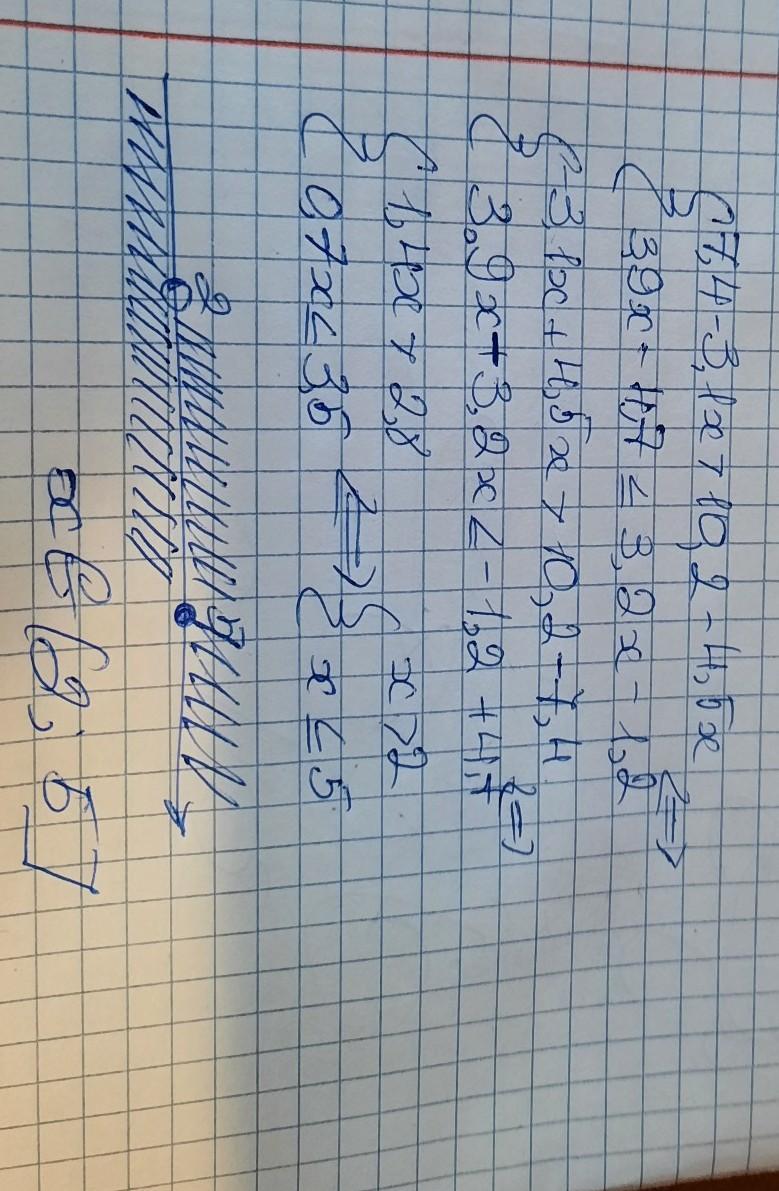 {7,4-3,1x > 10,2-4,5x
{3,9x-4,7 ≤ 3,2x-1,2 <=>
{-3,1x+4,5x > 10,2-7,4
{3,9x-3,2x ≤ -1,2+4,7 <=>
{1,4x > 2,8
{0,7x ≤ 3,5 <=> {x > 2
{x ≤ 5
2 5
x ∈ (2; 5]